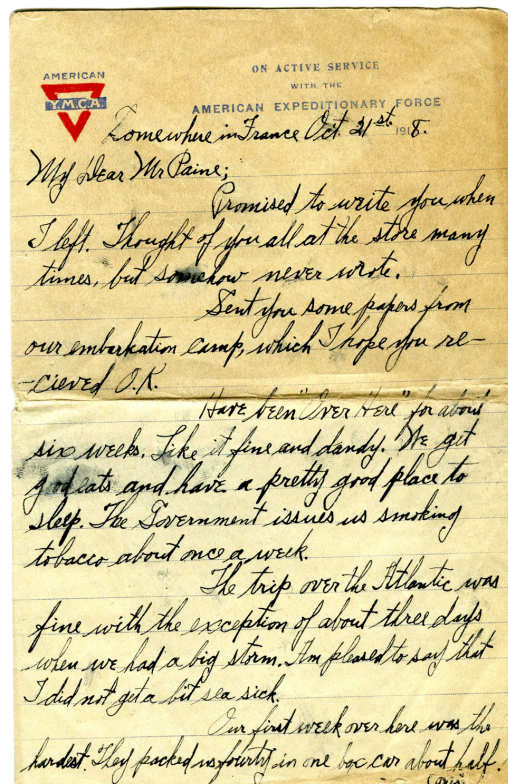 AMERICAN
Y.M.C.A.
ON ACTIVE SERVICE
WITH THE
AMERICAN EXPEDITIONARY FORCE
Somewhere in France Oct. 21st. 1918.
My Dear Mr Paine;
Promised to write you when
I left. Thought of you all at the store many
times, but somehow never wrote.
Sent you some papers from
our embarkation camp, which I hope you re-
-cieved O.K.
Have been "Over Here" for about
six weeks. Like it fine and dandy. We get
good eats and have a pretty good place to
sleep. The Government issues us smoking
tobacco about once a week.
The trip over the Atlantic was
fine with the exception of about three days
when we had a big storm. Am pleased to say that
I did not get a bit sea sick.
Our first week over here was the
hardest. They packed us fourty in one box car about half